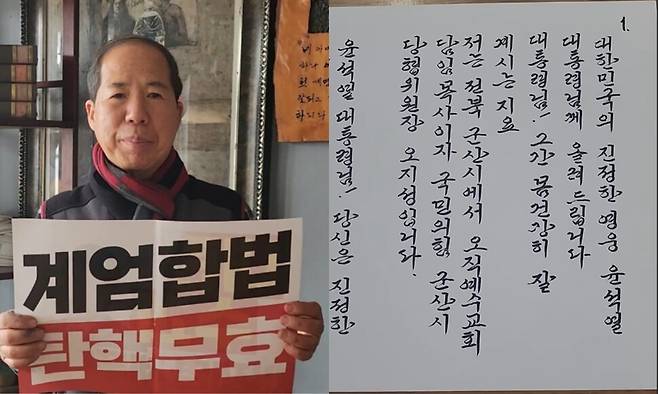 계엄합법
탄핵무효
1.
대한민국의 진정한 영웅 윤석열
대통령님께 올려드립니다
대통령님! 그간 몸건강히 잘
계시는지요
저는 전북 군산시에서 오직예수교회
담임목사이자 국민의힘 군산시
당협위원장 오지성입니다.
윤석열 대통령님! 당신은 진정한